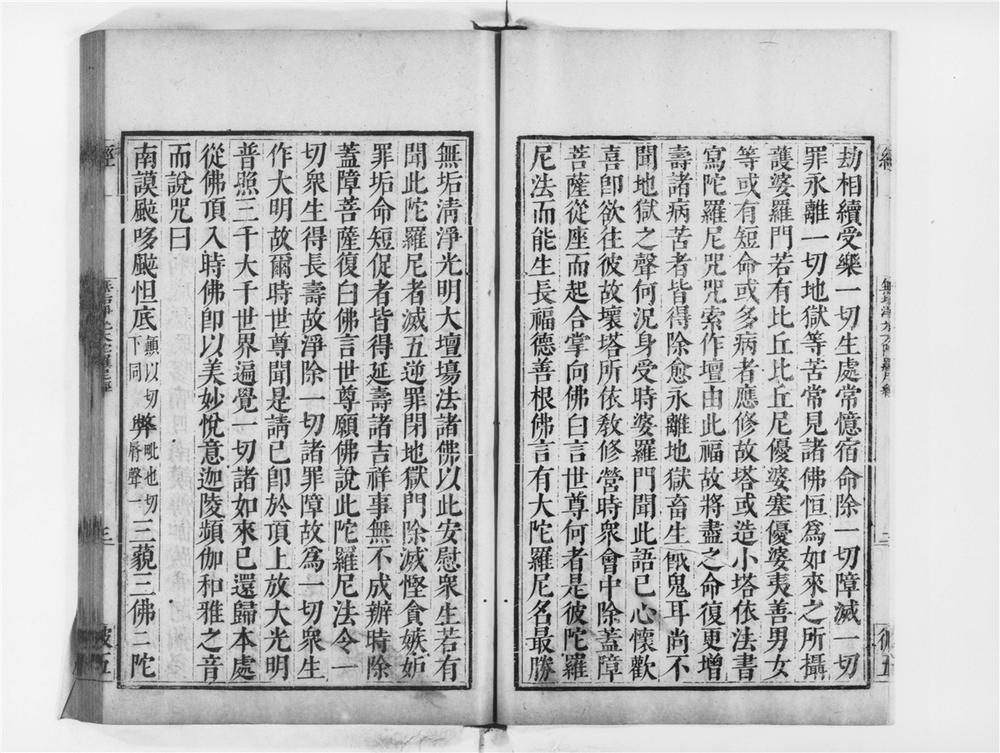 劫相續受樂一切生處常憶宿命除一切障滅一切
罪永離一切地獄等苦常見諸佛恒爲如來之所攝
護婆羅門若有比丘比丘尼優婆塞優婆夷善男女
等或有短命或多病者應修故塔或造小塔依法書
寫陀羅尼咒咒索作壇由此福故將盡之命復更增
壽諸病苦者皆得除愈永離地獄畜生餓鬼耳尚不
聞地獄之聲何況身受時婆羅門聞此語已心懷歡
喜卽欲往彼故壞塔所依敎修營時衆會中除蓋障
菩薩從座而起合掌向佛白言世尊何者是彼陀羅
尼法而能生長福德善根佛言有大陀羅尼名最勝
無垢淸淨光明大壇場法諸佛以此安慰衆生若有
聞此陀羅尼者滅五逆罪閉地獄門除滅慳貪嫉妒
罪垢命短促者皆得延壽諸吉祥事無不成辦時除
蓋障菩薩復白佛言世尊願佛說此陀羅尼法令一
切衆生得長壽故淨除一切諸罪障故爲一切衆生
作大明故爾時世尊聞是請已卽於頂上放大光明
普照三千大千世界遍覺一切諸如來已還歸本處
從佛頂入時佛卽以美妙悅意迦陵頻伽和雅之音
而說咒曰
南謨颰哆颰怛底顛以切下同弊毗也切脣聲一三藐三佛二陀
經
三
彼五